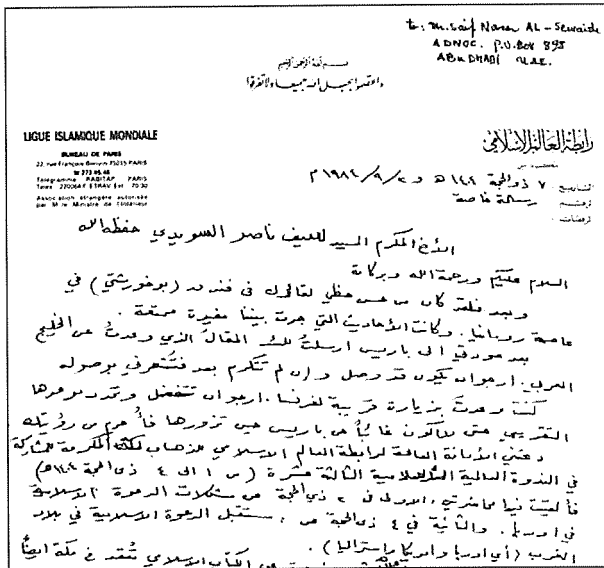 to: M. Saif Naser AL-Sewaidi
ADNOC. P.O.Box 898
ABU DHABI U.A.E.
بسم الله الرحمن الرحيم
واعتصموا بحبل الله جميعا ولا تفرقوا
LIGUE ISLAMIQUE MONDIALE
BUREAU DE PARIS
22, rue François Bonvin 75015 PARIS
Télégramme RABITAP PARIS
Association étrangère autorisée
par M. le Ministre de l'Intérieur
رابطة العالم الإسلامي
التاريخ ٧ ذو الحجة ١٤٠٤ هـ و ٢/٩/١٩٨٤ م
رسالة خاصة
الأخ المكرم السيد سيف ناصر السويدي حفظه الله
السلام عليكم ورحمة الله وبركاته
وبعد فلقد كان من حسن حظي لقائك في فندق (بوخورشتي) في
عاصمة رومانيا. وكانت الأحاديث التي جرت بيننا مفيدة ممتعة.
بعد عودتي الى باريس ارسلت لك المقال الذي وعدت عن الخليج
العربي. ارجو ان يكون قد وصل وان لم تتكرم بعد فتشعرني بوصوله
كنت وعدت بزيارة قريبة لفرنسا. ارجو ان تتفضل وتحدد موعدها
التقريبي حتى لا أكون غائباً عن باريس حين تزورها فأحرم من رؤيتك
دعتني الأمانة العامة لرابطة العالم الاسلامي للذهاب لمكة المكرمة للمشاركة
في الندوة العالمية الاسلامية الثالثة عشرة (من ١ الى ٤ ذي الحجة ١٤٠٤ هـ)
فألقيت فيها محاضرتي، الاولى في ٢ ذي الحجة عن مشكلات الدعوة الاسلامية
في اوربا. والثانية في ٤ ذي الحجة عن: مستقبل الدعوة الاسلامية في بلاد
الغرب (أي اوربا وامريكا واستراليا).
عن الكتاب الاسلامي تنعقد في مكة ايضاً